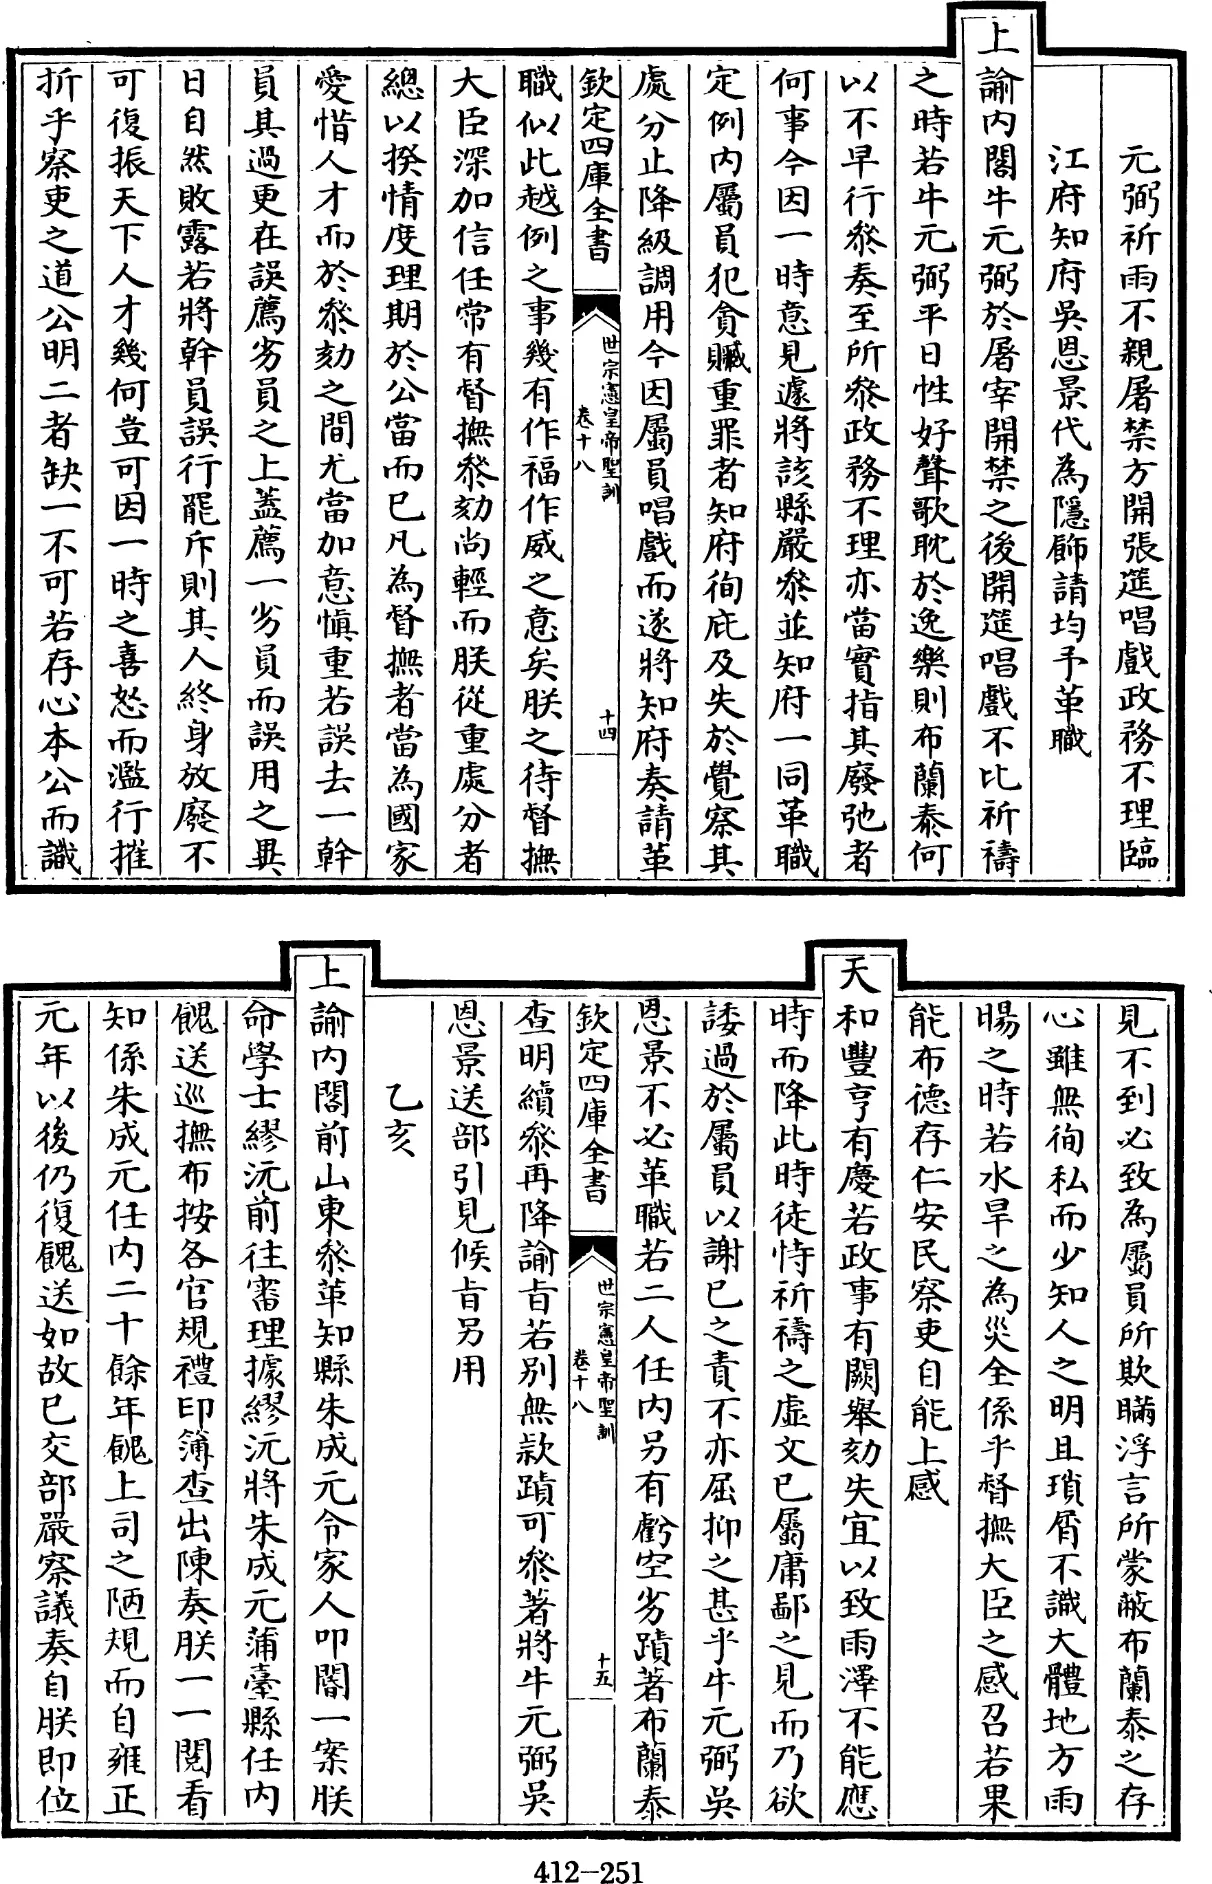 元弼祈雨不親屠禁方開張筵唱戲政務不理臨
江府知府吳恩景代為隱飾請均予革職
上諭内閣牛元弼於屠宰開禁之後開筵唱戲不比祈禱
之時若牛元弼平日性好聲歌耽於逸樂則布蘭泰何
以不早行叅奏至所叅政務不理亦當實指其廢弛者
何事今因一時意見遽將該縣嚴叅並知府一同革職
定例内屬員犯貪贓重罪者知府徇庇及失於覺察其
處分止降級調用今因屬員唱戲而遂將知府奏請革
欽定四庫全書
世宗憲皇帝聖訓
卷十八
十四
職似此越例之事幾有作福作威之意矣朕之待督撫
大臣深加信任常有督撫叅劾尚輕而朕從重處分者
總以揆情度理期於公當而已凡為督撫者當為國家
愛惜人才而於叅劾之間尤當加意慎重若誤去一幹
員其過更在誤薦劣員之上蓋薦一劣員而誤用之異
日自然敗露若將幹員誤行罷斥則其人終身放廢不
可復振天下人才幾何豈可因一時之喜怒而濫行摧
折乎察吏之道公明二者缺一不可若存心本公而識
見不到必致為屬員所欺瞞浮言所蒙蔽布蘭泰之存
心雖無徇私而少知人之明且瑣屑不識大體地方雨
暘之時若水旱之為災全係乎督撫大臣之感召若果
能布德存仁安民察吏自能上感
天和豐亨有慶若政事有闕舉劾失宜以致雨澤不能應
時而降此時徒恃祈禱之虛文已屬庸鄙之見而乃欲
諉過於屬員以謝已之責不亦屈抑之甚乎牛元弼吳
恩景不必革職若二人任内另有虧空劣蹟著布蘭泰
欽定四庫全書
世宗憲皇帝聖訓
卷十八
十五
查明續叅再降諭旨若別無款蹟可叅著將牛元弼吳
恩景送部引見候旨另用
乙亥
上諭内閣前山東叅革知縣朱成元令家人叩閽一案朕
命學士繆沅前往審理據繆沅將朱成元蒲臺縣任内
餽送巡撫布按各官規禮印簿查出陳奏朕一一閱看
知係朱成元任内二十餘年餽上司之陋規而自雍正
元年以後仍復餽送如故已交部嚴察議奏自朕即位
412-251